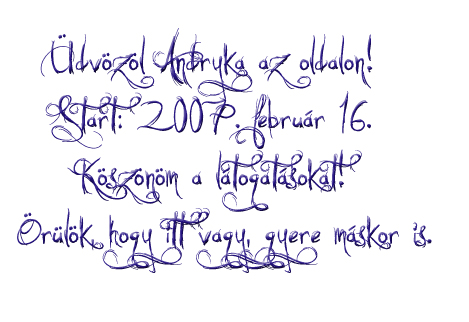 Üdvözöl Andryka az oldalon!
Start: 2007. február 16.
Köszönöm a látogatásokat!
Örülök, hogy itt vagy, gyere máskor is.